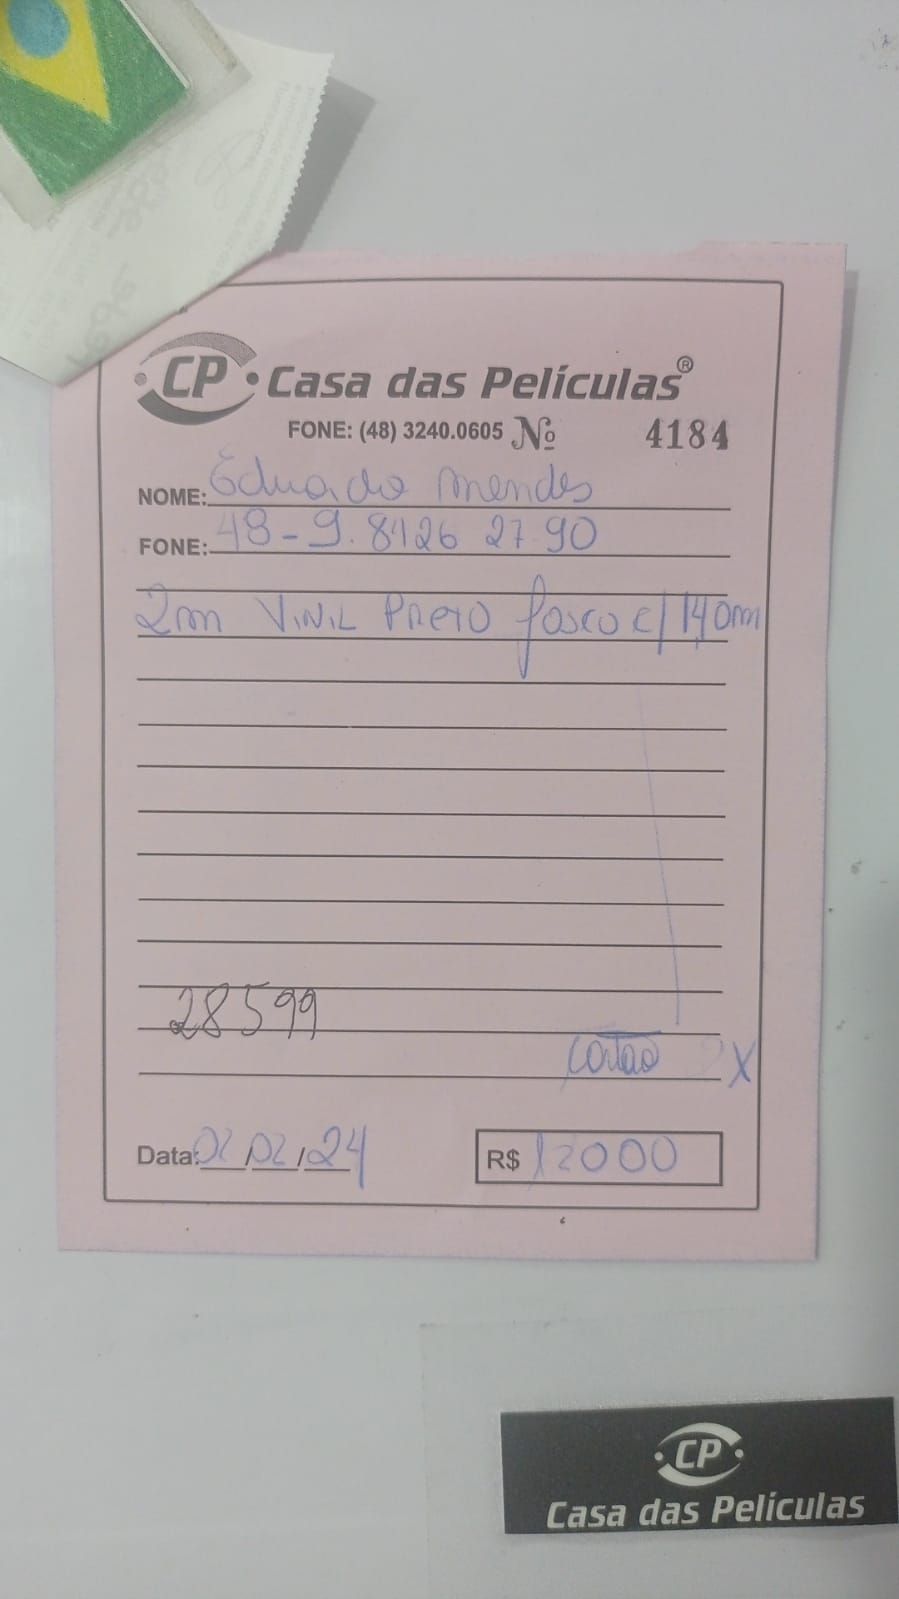 CP Casa das Películas®
FONE: (48) 3240.0605 Nº 4184
NOME: Eduardo Mendes
FONE: 48-9.8426 27 90
2m VINIL PRETO fosco c/ 1,40m
28599
Cartão 2X
Data: 02/02/24 R$ 12000
CP
Casa das Películas